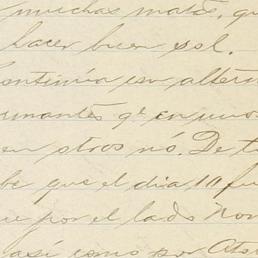 muchas matas, qu
hacer buen sol.
Continúa con altern
unos
en otros nó. De t
be que el dia 10 fu
ue por el lado Nor
así como por